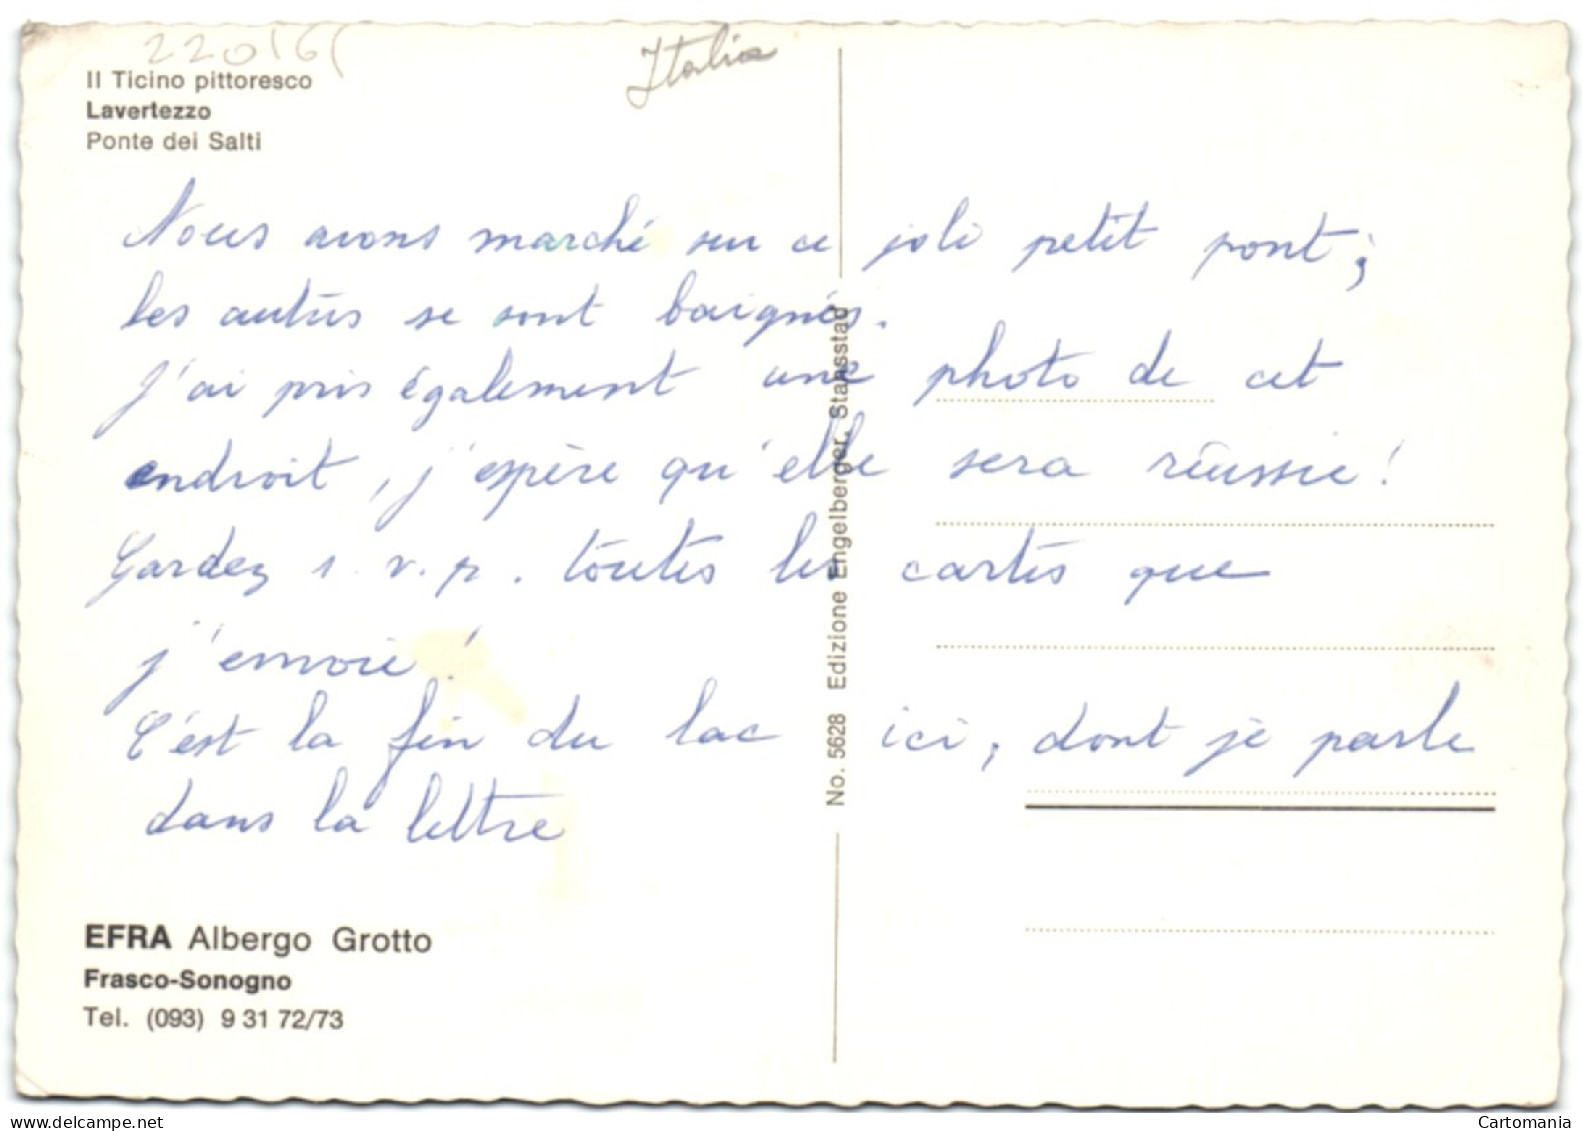 220161
Italia
Il Ticino pittoresco
Lavertezzo
Ponte dei Salti
Nous avons marché sur ce joli petit pont ;
les autres se sont baignés.
J'ai pris également une photo de cet
endroit, j'espère qu'elle sera réussie !
Gardez s.v.p. toutes les cartes que
j'envoie !
C'est la fin du lac ici, dont je parle
dans la lettre
No. 5628 Edizione Engelberger, Stansstad
EFRA Albergo Grotto
Frasco-Sonogno
Tel. (093) 9 31 72/73
Cartomania